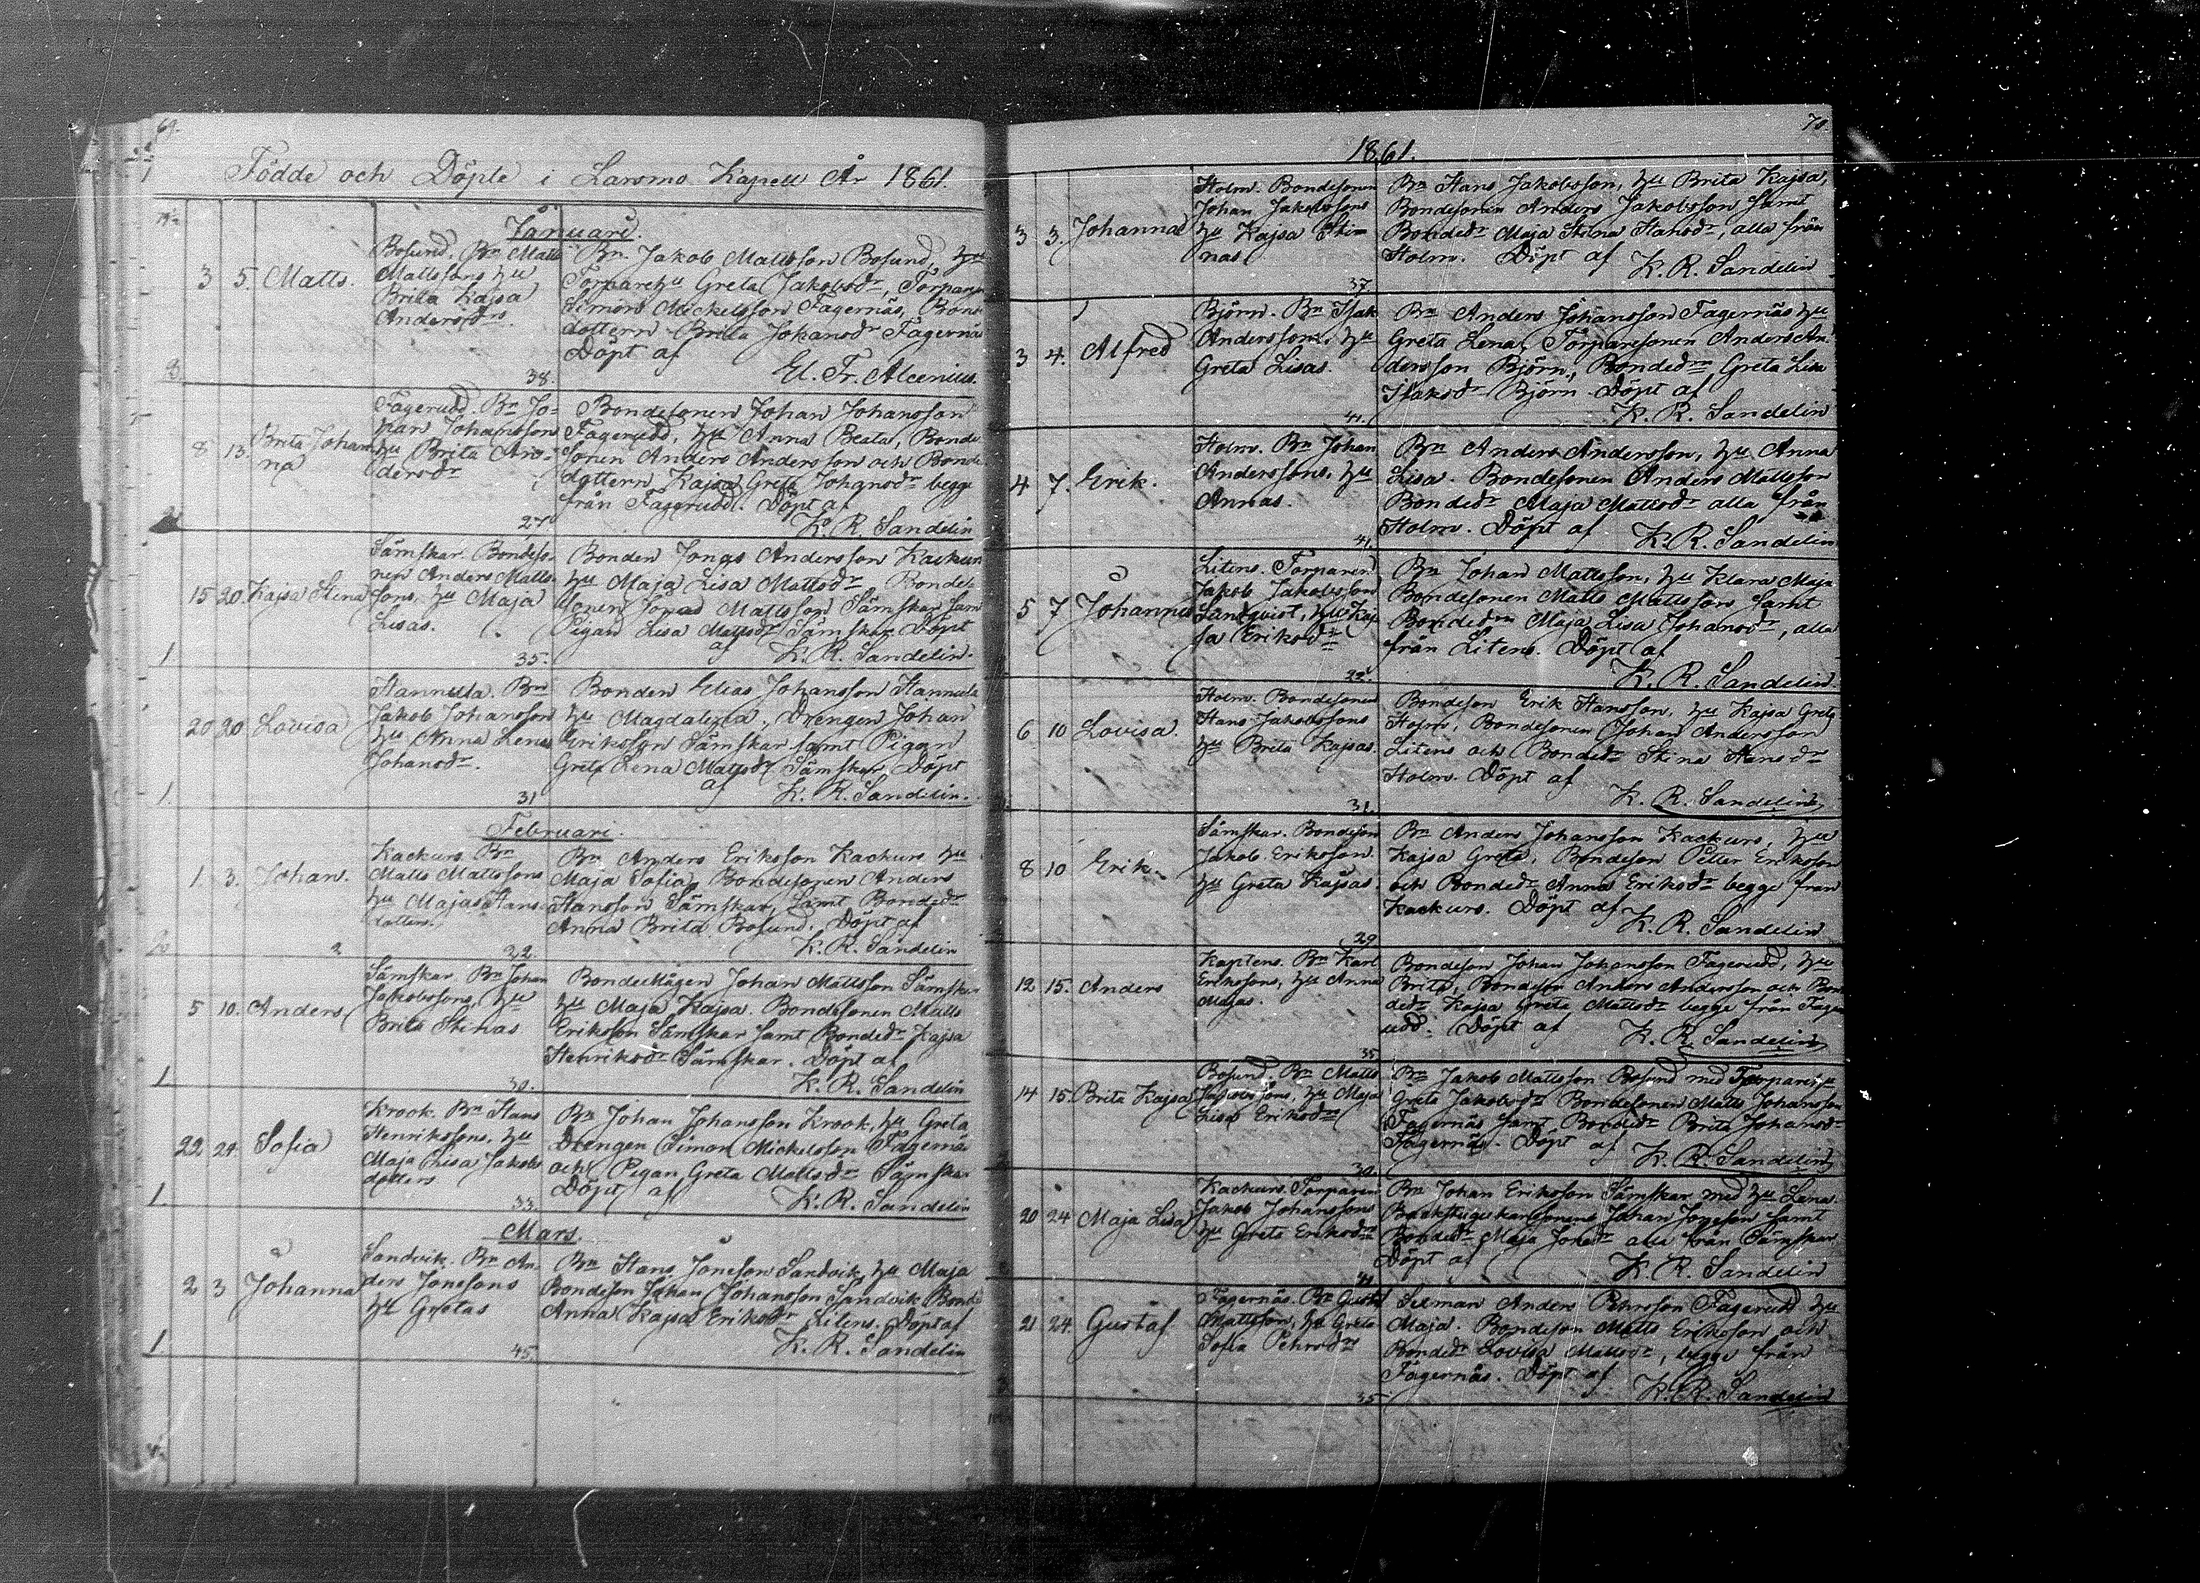 69.
Födde och Döpte i Larsmo Kapell År 1861.
Januari.
3 5. Matts.
Bosund. Bn Matts
Mattssons hu
Brita Kajsa
Andersdrs.
38.
Bn Jakob Mattsson Bosund, hu
Torpareh:u Greta Jakobsdr, Torparen
Simon Mickelsson Fagernäs, Bonde
dottern Brita Johansdr Fagernäs
Döpt af
El. Fr. Alcenius.
8 13. Brita Johan
na
Fagerudd. Bn Jo=
han Johansson
hu Brita An=
dersdr
27
Bondesonen Johan Johansson
Fagerudd, hu Anna Beata, Bonde
sonen Anders Andersson och Bonde
dottern Kajsa Greta Johansdr begge
från Fagerudd. Döpt af
K. R. Sandelin
15 20. Kajsa Stina
Sämskar. Bondeso-
nen Anders Matts
sons, hu Maja
Lisas.
1
35.
Bonden Jonas Andersson Kackurs
hu Maja Lisa Mattsdr Bonde
sonen Jonas Mattsson Sämskar sam
Pigan Lisa Mattsdr Sämskar Döpt
af K. R. Sandelin.
20 20 Lovisa
Hannula. Bn
Jakob Johansson
hu Anna Lena
Johansdr.
1.
31
Bonden Elias Johansson Hannula
hu Magdalena, Drengen Johan
Eriksson Sämskar samt Pigan
Greta Lena Mattsdr Sämskar. Döpt
af K. R. Sandelin.
Februari.
1. 3. Johan.
Kackurs Bn
Matts Mattssons
hu Majas Hans
dotters.
2
22.
Bn Anders Eriksson Kackurs hu
Maja Sofia, Bondesonen Anders
Hansson Sämskar, samt Bondedr
Anna Brita Bosund. Döpt af
K. R. Sandelin
5 10. Anders
Sämskar Bn Johan
Jakobssons, hu
Brita Stinas
1
30.
Bondemågen Johan Mattsson Sämskar
hu Maja Kajsa. Bondesonen Matts
Eriksson Sämskar samt Bondedr Kajsa
Henriksdr Sämskar. Döpt af
K. R. Sandelin
22 24. Sofia
Krook. Bn Hans
Henrikssons, hu
Maja Lisa Jakobs
dotters
1.
33.
Bn Johan Johansson Krook, hu Greta
Drengen Simon Mickelsson Fagernäs
och Pigan Greta Mattsdr Sämska
Döpt af K. R. Sandelin
Mars.
2 3 Johanna
Sandvik. Bn An-
ders Jonssons
hu Gretas
1
45.
Bn Hans Jonsson Sandvik hu Maja
Bondeson Johan Johansson Sandvik Bonde
Anna Kajsa Eriksdr Litens. Döpt af
K. R. Sandelin
70.
1861.
3 3. Johanna
Holm. Bondesonen
Johan Jakobssons
hu Kajsa Sti=
nas
37.
Bn Hans Jakobsson, hu Brita Kajsa,
Bondesonen Anders Jakobsson samt
Bondedr Maja Stina Hansdr, alla från
Holm. Döpt af K. R. Sandelin
3 4. Alfred
Björn. Bn Isak
Anderssons, hu
Greta Lisas.
41.
Bn Anders Johansson Fagernäs hu
Greta Lena, Torparesonen Anders An
dersson Björn, Bondedn Greta Lisa
Isaksdr Björn. Döpt af
K. R. Sandelin
4 7. Erik.
Holm. Bn Johan
Anderssons, hu
Annas.
41.
Bn Anders Andersson, hu Anna
Lisa. Bondesonen Anders Mattsson
Bondedr Maja Mattsdr alla från
Holm. Döpt af K. R. Sandelin
5 7 Johannes
Litens. Torparen
Jakob Jakobsson
Sundqvist, hu Kaj
sa Eriksdr
22.
Bn Johan Mattsson, hu Klara Maja
Bondesonen Matts Mattsson samt
Bondedn Maja Lisa Johansdr, alla
från Litens. Döpt af
K. R. Sandelin.
6 10 Lovisa.
Holm. Bondesonen
Hans Jakobssons
hu Brita Kajsas.
31.
Bondeson Erik Hansson, hu Kajsa Greta
Holm, Bondesonen Johan Andersson
Litens och Bondedr Stina Hansdr
Holm. Döpt af
K. R. Sandelin
8 10 Erik.
Sämskar. Bondeson
Jakob Eriksson.
hu Greta Kajsas.
29
Bn Anders Johansson Kackurs, hu
Kajsa Greta, Bondeson Petter Eriksson
och Bondedr Anna Eriksdr begge från
Kackurs. Döpt af K. R. Sandelin
12 15. Anders
Kaptens. Bn Karl
Erikssons, hu Anna
Majas.
35
Bondeson Johan Johansson Fagerudd, hu
Brita, Bondeson Anders Andersson och Bon
dedr Kajsa Greta Mattsdr begge från Fage
udd. Döpt af K. R. Sandelin
14 15 Brita Kajsa
Bosund. Bn Matts
Jakobssons, hu Maja
Lisa Eriksdr
30.
Bn Jakob Mattsson Bosund med Torpareh:u
Greta Jakobsdr Bondesonen Matts Johansson
Fagernäs samt Bondedr Brita Johansdr
Fagernäs. Döpt af K. R. Sandelin
20 24 Maja Lisa
Kackurs. Torparen
Jakob Johanssons
hu Greta Eriksdr
41
Bn Johan Eriksson Sämskar med hu Lena.
Backstugukarlsonen Johan Jonsson samt
Bondedr Maja Jonsdr alla från Sämskar
Döpt af K. R. Sandelin
21 24. Gustaf
Fagernäs. Bn Gustaf
Mattsson, hu Greta
Sofia Pehrsdr
35
Sexman Anders Pehrsson Fagerudd hu
Maja. Bondeson Matts Eriksson och
Bondedr Lovisa Mattsdr, begge från
Fagernäs. Döpt af K. R. Sandelin